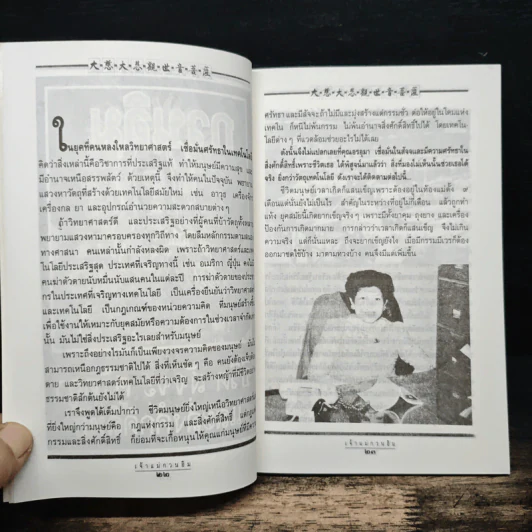 大•慈•大•悲•觀•世•音•菩•薩
ในยุคที่คนหลงใหลวิทยาศาสตร์ เชื่อมั่นศรัทธาในเทคโนโลยี
คิดว่าสิ่งเหล่านี้คือวิชาการที่ประเสริฐแท้ ทำให้มนุษย์มีความสุข และ
มีอำนาจเหนือสรรพสัตว์ ด้วยเหตุนี้ จึงทำให้คนในปัจจุบัน พยายาม
แสวงหาวัตถุที่สร้างด้วยเทคโนโลยีสมัยใหม่ เช่น อาวุธ เครื่องจักร
เครื่องกล ยา และอุปกรณ์อำนวยความสะดวกสบายต่างๆ
ถ้าวิทยาศาสตร์ดี และประเสริฐอย่างที่ผู้คนที่บ้าวัตถุทั้งหลาย
พยายามแสวงหามาครอบครองทุกวิถีทาง โดยลืมหลักธรรมคำสอน
ทางศาสนา คนเหล่านั้นกำลังหลงผิด เพราะถ้าวิทยาศาสตร์และเทค
โนโลยีประเสริฐสุด ประเทศที่เจริญทางนี้ เช่น อเมริกา ญี่ปุ่น คงไม่มี
คนฆ่าตัวตายนับหมื่นนับแสนคนในแต่ละปี การฆ่าตัวตายของประชา
กรในประเทศที่เจริญทางเทคโนโลยี เป็นเครื่องยืนยันว่าวิทยาศาสตร์
และเทคโนโลยี เป็นกฎเกณฑ์ของหน่วยความคิด ที่มนุษย์สร้างขึ้น
เพื่อใช้งานให้เหมาะกับยุคสมัยหรือความต้องการในช่วงเวลาจำกัด
นั้น มันไม่ใช่สิ่งประเสริฐอะไรเลยสำหรับมนุษย์
เพราะถึงอย่างไรมันก็เป็นเพียงวงจรความคิดของมนุษย์ มันไม่
สามารถเหนือกฎธรรมชาติไปได้ สิ่งที่เห็นชัดๆ คือ คนยังต้องแก่เจ็บ
ตาย และวิทยาศาสตร์เทคโนโลยีที่ว่าเจริญ จะสร้างหญ้าที่มีชีวิตอย่าง
ธรรมชาติสักต้นยังไม่ได้
เราจึงพูดได้เต็มปากว่า ชีวิตมนุษย์ยิ่งใหญ่เหนือวิทยาศาสตร์
ที่ยิ่งใหญ่กว่ามนุษย์คือ กฎแห่งกรรม และสิ่งศักดิ์สิทธิ์ แต่กฎแห่ง
กรรมและสิ่งศักดิ์สิทธิ์ ก็ย่อมที่จะเกื้อหนุนให้คุณแก่มนุษย์ที่มีความ
เจ้าแม่กวนอิม
๒๖๒
大•慈•大•悲•觀•世•音•菩•薩
ศรัทธา และมีสัจจะถ้าไม่มีและมุ่งสร้างแต่กรรมชั่ว ต่อให้อยู่ในโดมแห่ง
เทคโน ก็หนีไม่พ้นกรรม ไม่พ้นอำนาจสิ่งศักดิ์สิทธิ์ไปได้ โดยเทคโน-
โลยีต่างๆ ที่แวดล้อมช่วยอะไรไม่ได้เลย
ดังนั้นจึงไม่แปลกเลยที่คุณอรอุมา เชื่อมั่นในสัจจะและมีความศรัทธาใน
สิ่งศักดิ์สิทธิ์เพราะชีวิตเธอ ได้พิสูจน์มาแล้วว่า สิ่งที่มองไม่เห็นนั้นช่วยเธอได้
จริง ยิ่งกว่าวัตถุเทคโนโลยี ดังเราจะได้ติดตามต่อไปนี้...
ชีวิตมนุษย์เวลาเกิดก็แสนเข็ญเพราะต้องอยู่ในท้องแม่ตั้ง ๙
เดือนแต่นั่นยังไม่เป็นไร สำคัญในระหว่างที่อยู่ไม่กี่เดือน แล้วถูกทำ
แท้ง ยุคสมัยนี้เกิดยากเข็ญจริงๆ เพราะมีทั้งยาคุม ถุงยาง และเครื่อง
ป้องกันการเกิดมากมาย การกล่าวว่าเวลาเกิดก็แสนเข็ญ จึงไม่เกิน
ความจริง แต่ก็นั่นแหละ ถึงจะยากเข็ญยังไง เมื่อมีกรรมมีเวรก็ต้อง
ออกมาชดใช้บ้าง มาตามทวงบ้าง คนจึงมีแต่เพิ่มขึ้น
เจ้าแม่กวนอิม
๒๖๓